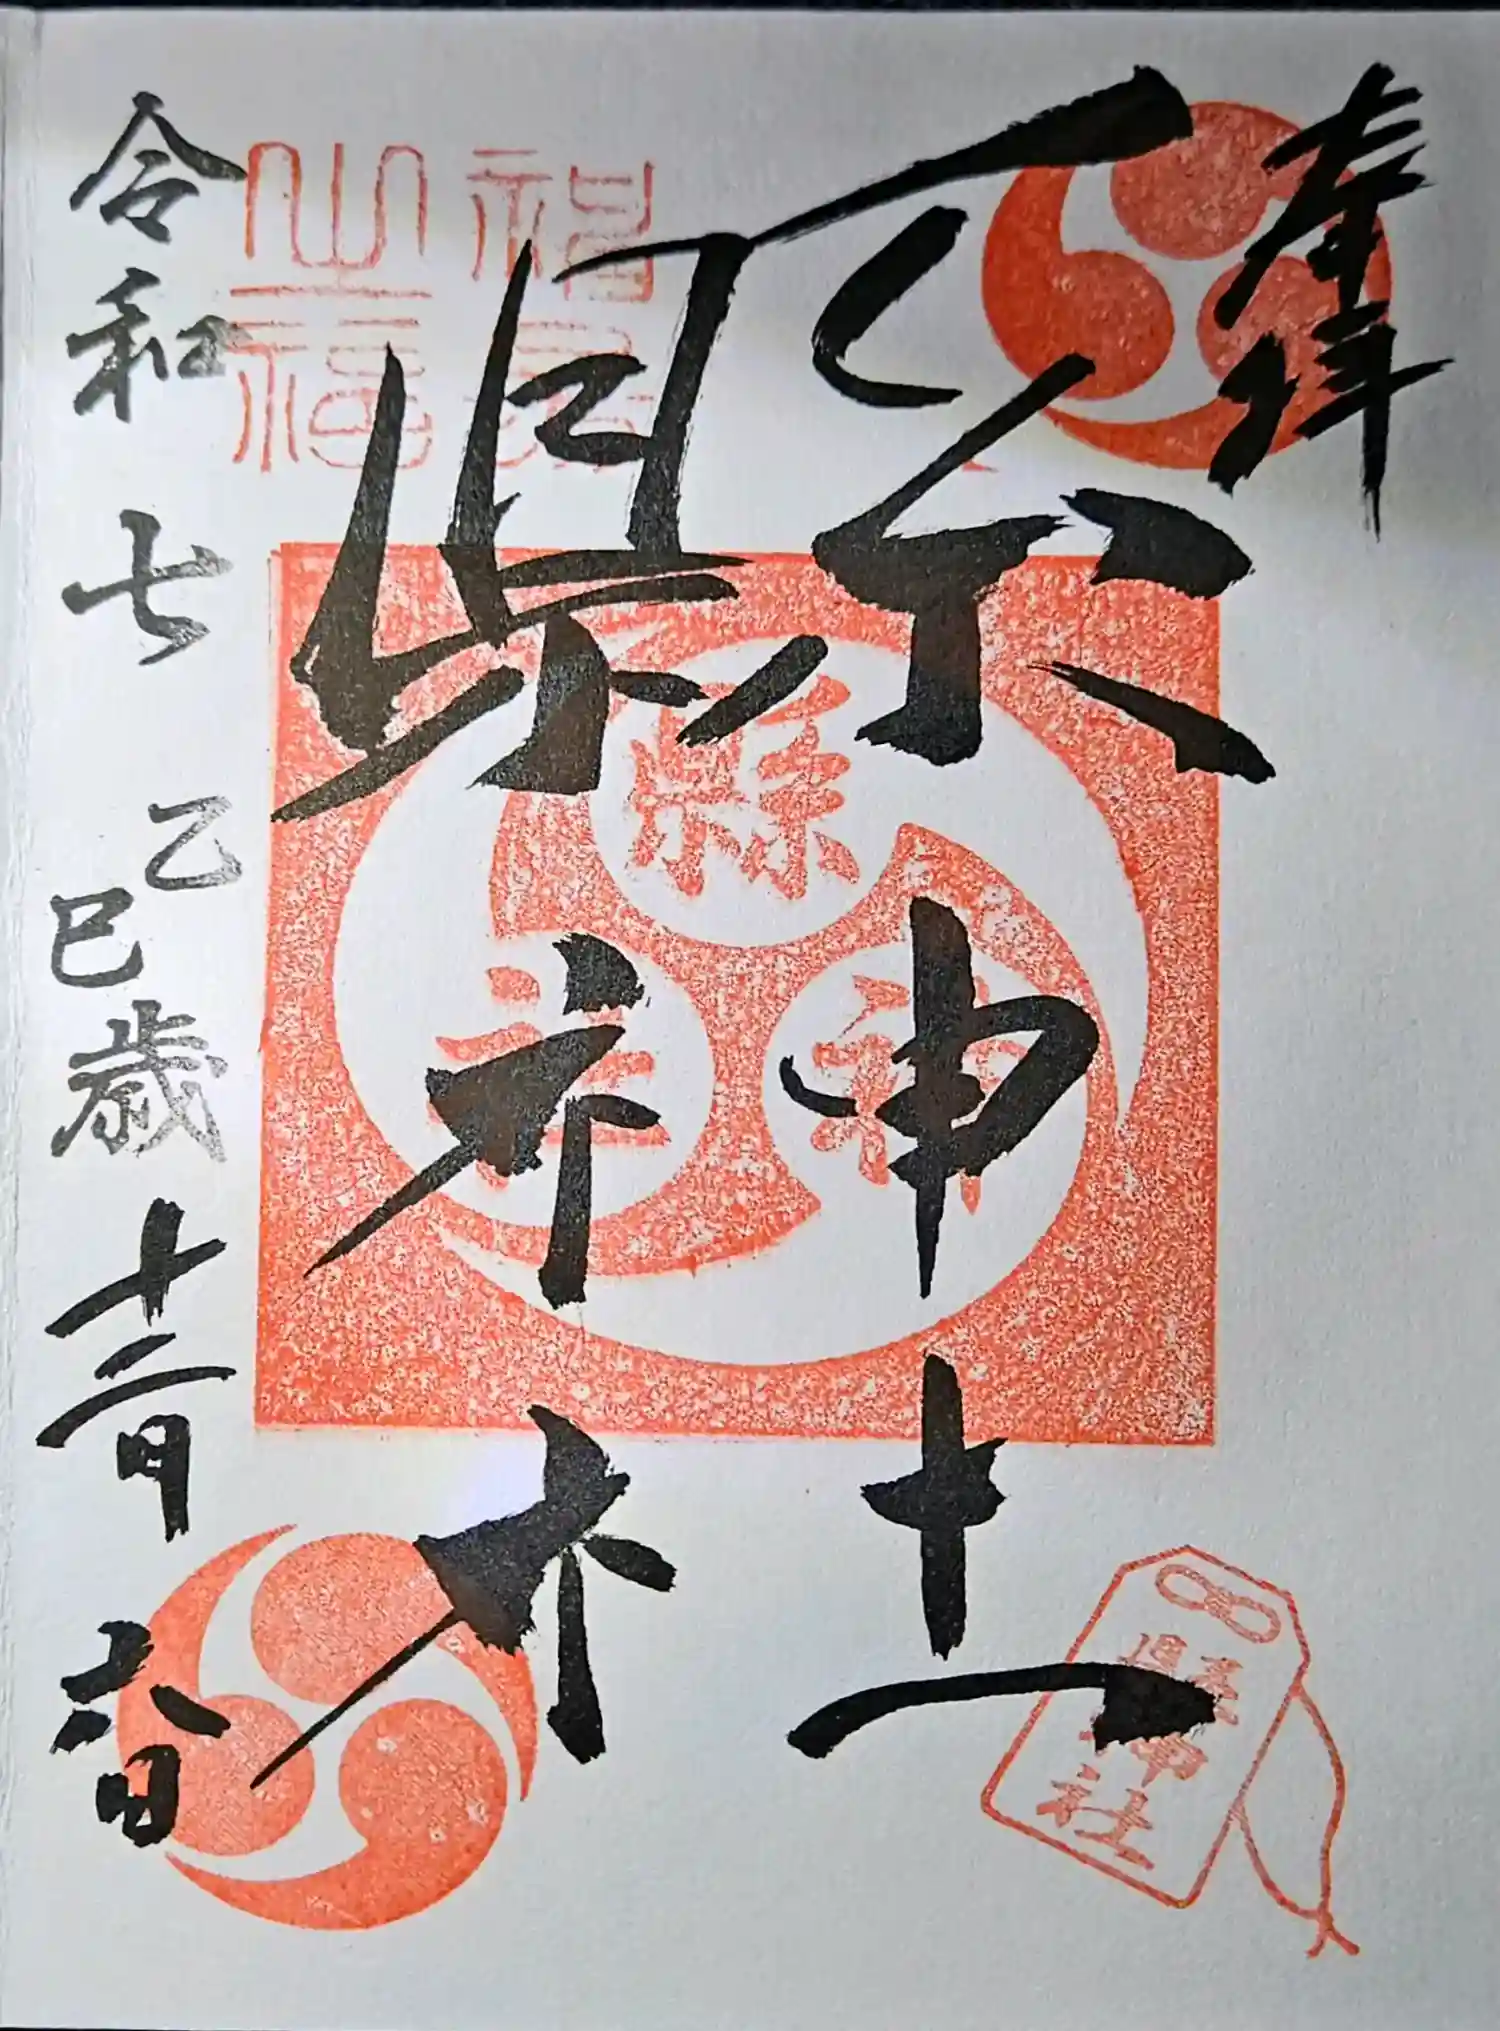 奉拝
縣神社
縣神社
令和七乙巳歳十二月六日
縣神社